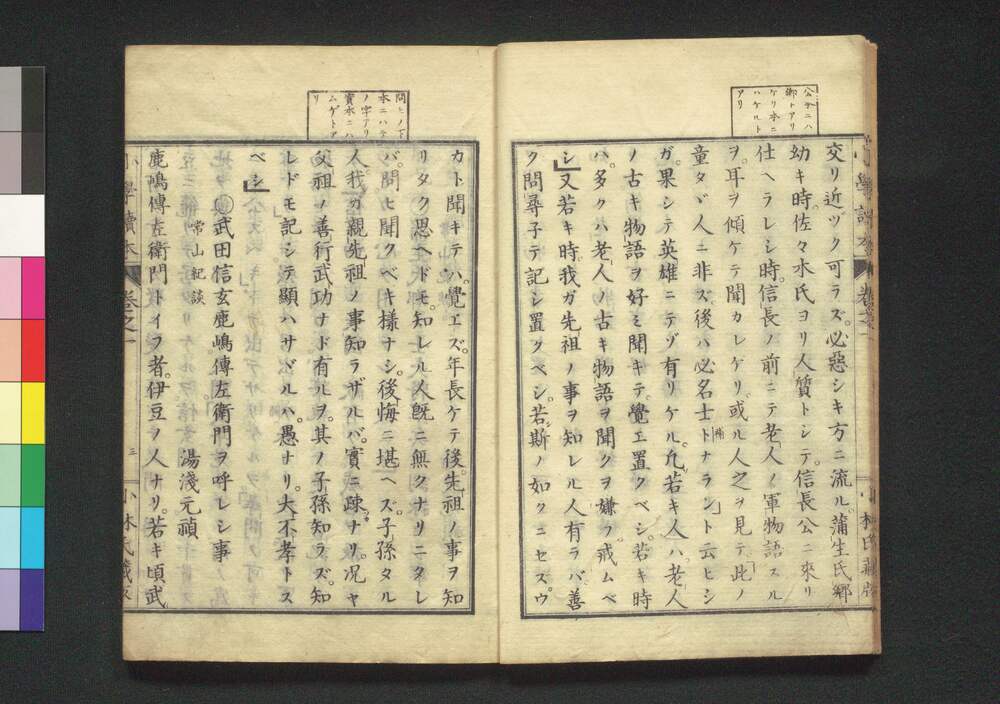 公本ニハ
郷トアリ
ケリ本ニ
ハケルト
アリ
交リ近ヅク可ラズ。必惡シキ方ニ流ル。蒲生氏郷
幼キ時。佐々木氏ヨリ人質トシテ。信長公ニ來リ
仕ヘラレシ時。信長ノ前ニテ老人ノ軍物語スル
ヲ。耳ヲ傾ケテ聞カレケリ。或ル人之ヲ見テ。此ノ
童タヾ人ニ非ズ。後ハ必名士トナラント云ヒシ
ガ。果シテ英雄ニテゾ有リケル。凡若キ人ハ。老人
ノ古キ物語ヲ好ミ聞キテ。覺エ置クベシ。若キ時
ハ。多クハ老人ノ古キ物語ヲ聞クヲ嫌フ。戒ムベ
シ」又若キ時。我ガ先祖ノ事ヲ知レル人有ラバ。善
ク問尋子テ記シ置クベシ。若斯ノ如クニセズ。ウ
問ヒノ下
本ニハテ
ノ字アリ
實永ニハ
ムゲトア
リ
カト聞キテハ。覺エズ。年長ケテ後。先祖ノ事ヲ知
リタク思ヘドモ。知レル人旣ニ無クナリニタレ
バ。問ヒ聞クベキ樣ナシ。後悔ニ堪ヘズ。子孫タル
人。我ガ親先祖ノ事知ラザルバ。實ニ疎ナリ。况ヤ
父祖ノ善行武功ナド有ルヲ。其ノ子孫知ラズ。知
レドモ記シテ顯ハサヾルハ。愚ナリ。大不孝トス
ベシ」
武田信玄鹿嶋傳左衛門ヲ呼レシ事
常山紀談
湯淺元禎
鹿嶋傳左衛門トイフ者。伊豆ノ人ナリ。若キ頃武
小學讀本
卷之一
三
小林氏藏版